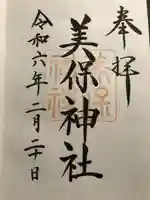 奉拝
美保神社
令和六年二月二十日